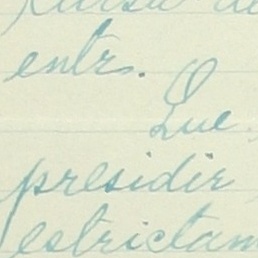 entr.
Que
presidir
estrictam